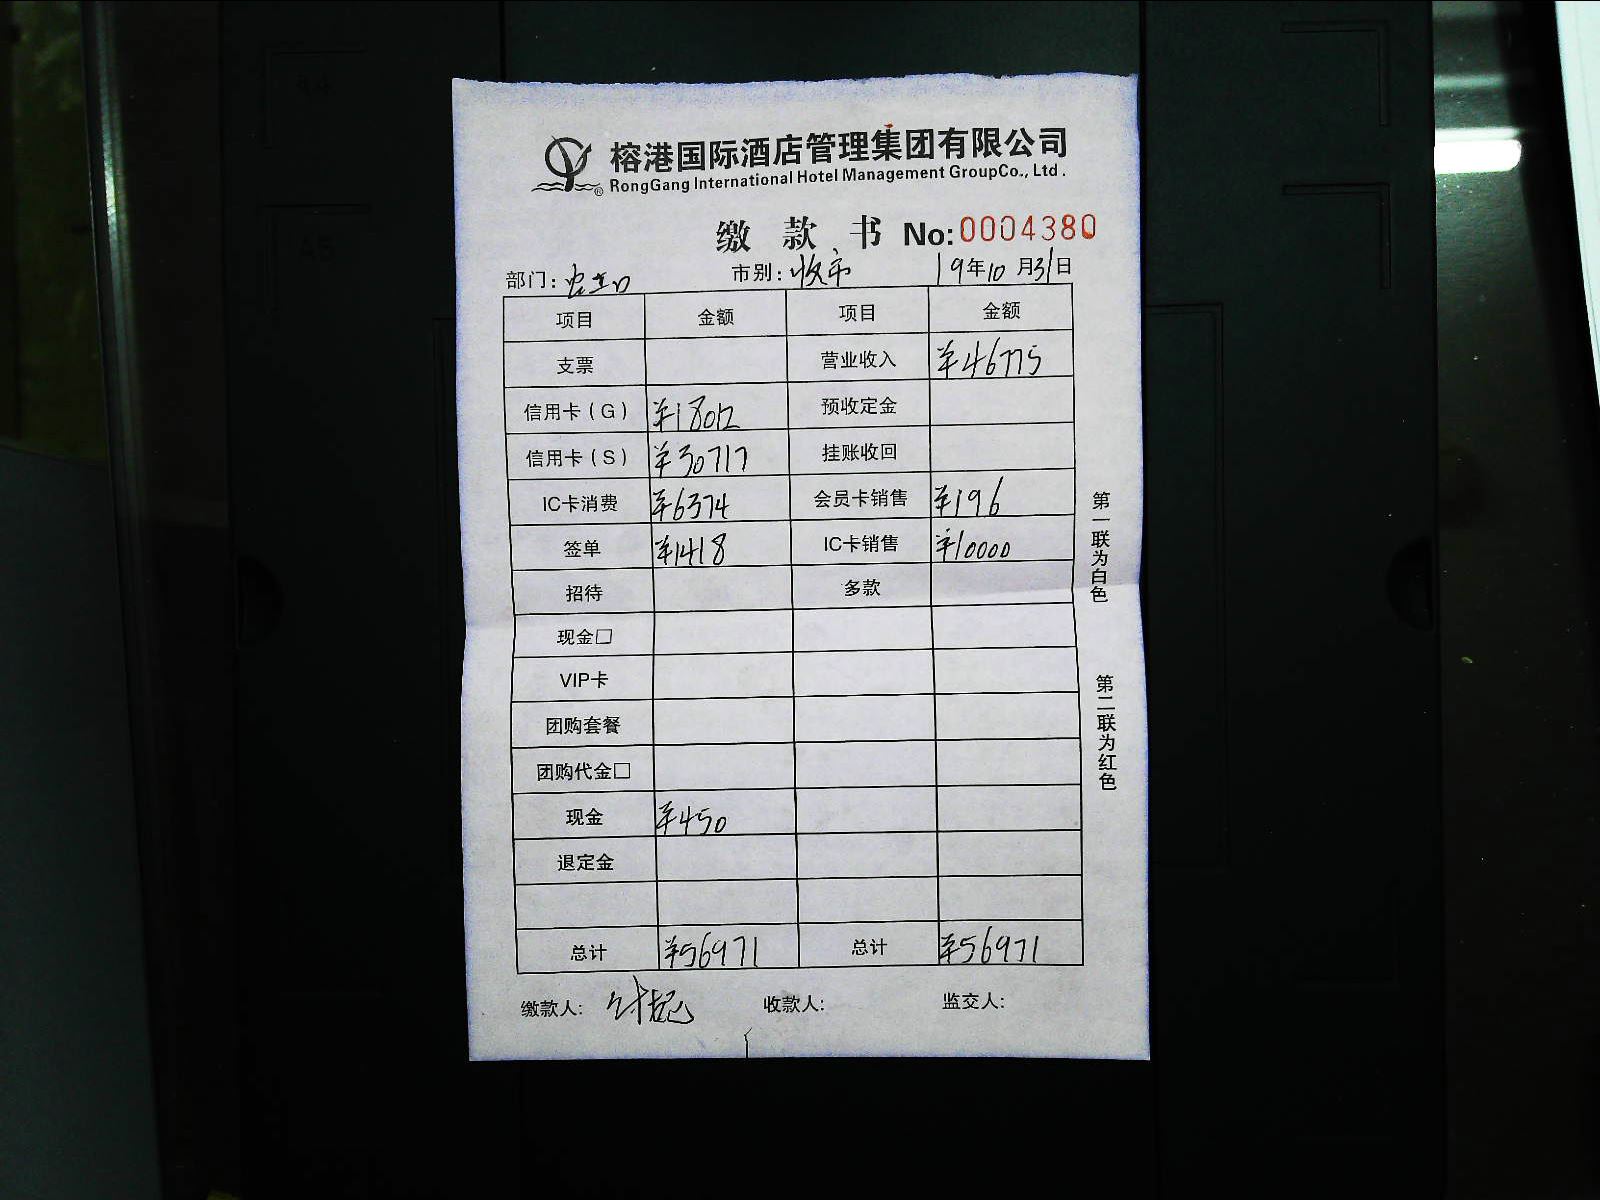 A5
榕港国际酒店管理集团有限公司
RongGang International Hotel Management GroupCo., Ltd.
缴 款 书 No:0004380
部门: 市别:收市 19年10月31日
项目 金额 项目 金额
支票 营业收入 ¥46775
信用卡(G) ¥18012 预收定金
信用卡(S) ¥30717 挂账收回
IC卡消费 ¥6374 会员卡销售 ¥196
签单 ¥1418 IC卡销售 ¥10000
招待 多款
现金□
VIP卡
团购套餐
团购代金□
现金 ¥450
退定金
总计 ¥56971 总计 ¥56971
缴款人: 收款人: 监交人:
第一联为白色
第二联为红色